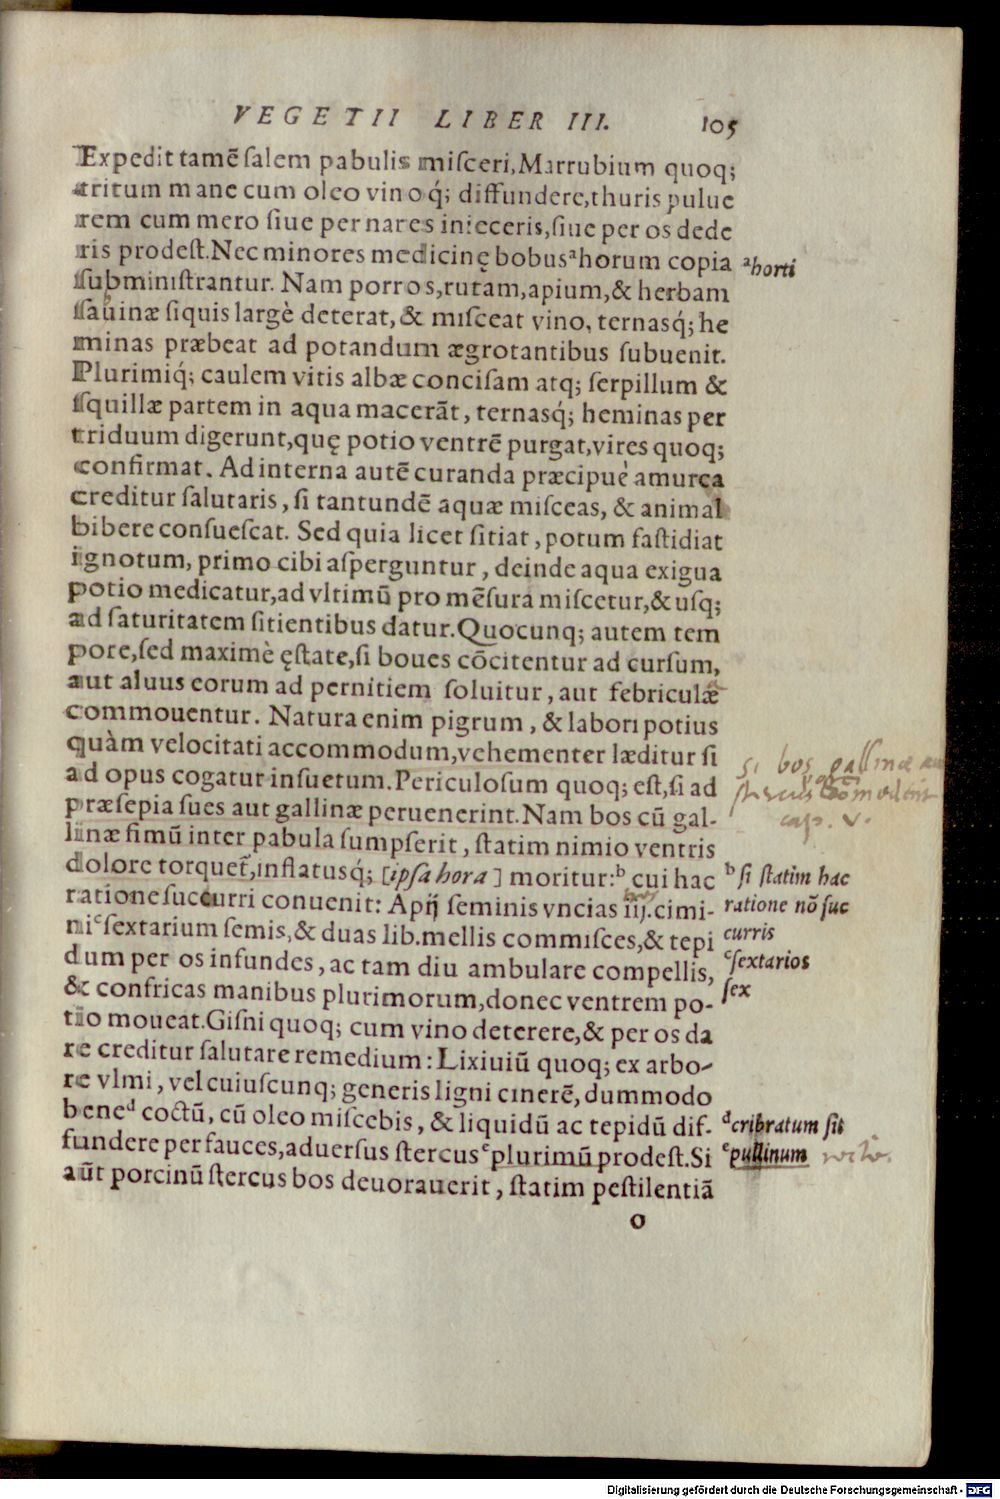 VEGETII LIBER III. 105
Expedit tamē salem pabulis misceri, Marrubium quoq;
tritum mane cum oleo vinoq́; diffundere, thuris pulue
rem cum mero siue per nares inieceris, siue per os dede
ris prodest. Nec minores medicinę bobusᵃ horum copia
ᵃhorti
subministrantur. Nam porros, rutam, apium, & herbam
sauinæ siquis largè deterat, & misceat vino, ternasq́; he
minas præbeat ad potandum ægrotantibus subuenit.
Plurimiq́; caulem vitis albæ concisam atq; serpillum &
squillæ partem in aqua macerāt, ternasq́; heminas per
triduum digerunt, quę potio ventrē purgat, vires quoq;
confirmat. Ad interna autē curanda præcipuè amurca
creditur salutaris, si tantundē aquæ misceas, & animal
bibere consuescat. Sed quia licet sitiat, potum fastidiat
ignotum, primo cibi asperguntur, deinde aqua exigua
potio medicatur, ad vltimū pro mēsura miscetur, & usq;
ad saturitatem sitientibus datur. Quocunq; autem tem
pore, sed maximè ęstate, si boues cōcitentur ad cursum,
aut aluus eorum ad pernitiem soluitur, aut febriculæ
commouentur. Natura enim pigrum, & labori potius
quàm velocitati accommodum, vehementer læditur si
ad opus cogatur insuetum. Periculosum quoq; est, si ad
præsepia sues aut gallinæ peruenerint. Nam bos cū gal-
si bos gallinæ
stercus
cap. V.
linæ fimū inter pabula sumpserit, statim nimio ventris
dolore torquet̄, inflatusq́; [ipsa hora] moritur:ᵇ cui hac
ᵇsi statim hac
ratione succurri conuenit: Apij seminis vncias iij. cimi-
ratione nō suc
curris
niᶜ sextarium semis, & duas lib. mellis commisces, & tepi
ᶜsextarios
sex
dum per os infundes, ac tam diu ambulare compellis,
& confricas manibus plurimorum, donec ventrem po-
tio moueat. Gisni quoq; cum vino deterere, & per os da
re creditur salutare remedium: Lixiuiū quoq; ex arbo-
re vlmi, vel cuiuscunq; generis ligni cinerē, dummodo
beneᵈ coctū, cū oleo miscebis, & liquidū ac tepidū dif-
ᵈcribratum sit
fundere per fauces, aduersus stercusᵉ plurimū prodest. Si
ᵉpullinum
aūt porcinū stercus bos deuorauerit, statim pestilentiā
o
Digitalisierung gefördert durch die Deutsche Forschungsgemeinschaft - DFG